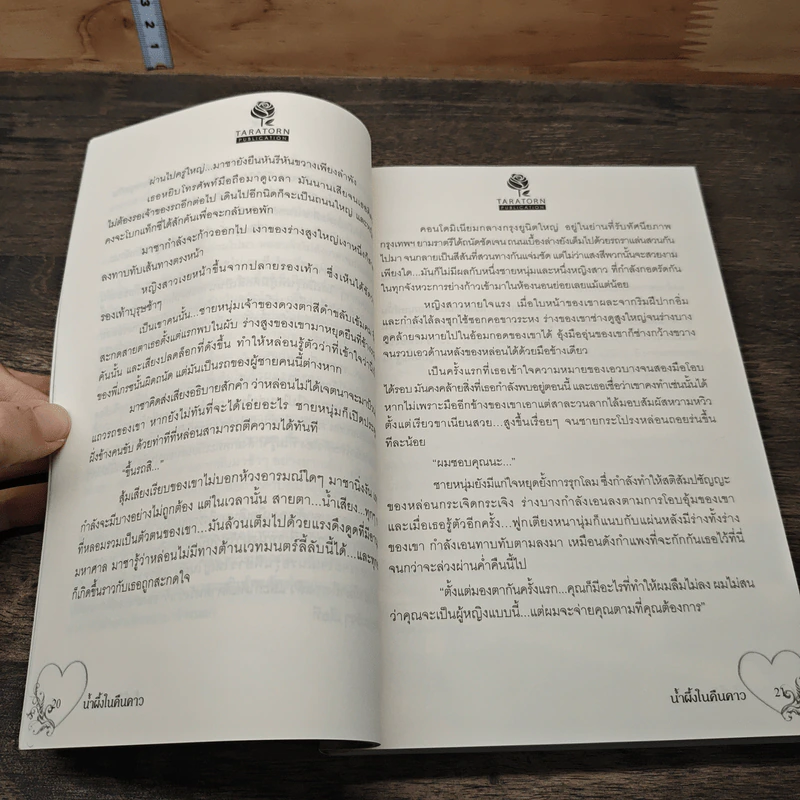 3
2
1
TARATORN
PUBLICATION
ผ่านไปครู่ใหญ่...มาซายังยืนหันรีหันขวางเพียงลำพัง
เธอหยิบโทรศัพท์มือถือมาดูเวลา มันนานเสียจน
ไม่ต้องรอเจ้าของรถอีกต่อไป เดินไปอีกนิดก็จะเป็นถนนใหญ่
คงจะโบกแท็กซี่ได้สักคันเพื่อจะกลับหอพัก
มาซากำลังจะก้าวออกไป เงาของร่างสูงใหญ่เงาหนึ่งก็
ลงทาบทับเส้นทางตรงหน้า
หญิงสาวเงยหน้าขึ้นจากปลายรองเท้า ซึ่งเห็นได้ชัด
รองเท้าบุรุษช้าๆ
เป็นเขาคนนั้น...ชายหนุ่มเจ้าของดวงตาสีดำขลับเข้มคม
สะกดสายตาเธอตั้งแต่แรกพบในผับ ร่างสูงของเขามาหยุดยืนที่ข้าง
คันนั้น และเสียงปลดล็อกที่ดังขึ้น ทำให้หล่อนรู้ตัวว่าที่เข้าใจว่า
ของพี่เภรซนั้นผิดถนัด แต่มันเป็นรถของผู้ชายคนนี้ต่างหาก
มาซาคิดส่งเสียงอธิบายสักคำ ว่าหล่อนไม่ได้เจตนาจะมา
แถวรถของเขา หากยังไม่ทันที่จะได้เอ่ยอะไร ชายหนุ่มก็เปิดประตู
ฝั่งข้างคนขับ ด้วยท่าทีที่หล่อนสามารถตีความได้ทันที
“ขึ้นรถสิ...”
สุ้มเสียงเรียบของเขาไม่บอกห้วงอารมณ์ใดๆ มาซานิ่งงัน
กำลังจะมีบางอย่างไม่ถูกต้อง แต่ในเวลานั้น สายตา...น้ำเสียง...ทุกๆ
ที่หลอมรวมเป็นตัวตนของเขา...มันล้วนเต็มไปด้วยแรงดึงดูดที่มีอานุ
มหาศาล มาซารู้ว่าหล่อนไม่มีทางต้านเวทมนตร์ลี้ลับนี้ได้...และทุก
ก็เกิดขึ้นราวกับเธอถูกสะกดใจ
20 น้ำผึ้งในคืนคาว
TARATORN
PUBLICATION
คอนโดมิเนียมกลางกรุงยูนิตใหญ่ อยู่ในย่านที่รับทัศนียภาพ
กรุงเทพฯ ยามราตรีได้ถนัดชัดเจน ถนนเบื้องล่างยังเต็มไปด้วยรถราแล่นสวนกัน
ไปมา จนกลายเป็นสีสันที่สวนทางกันแจ่มชัด แต่ไม่ว่าแสงสีพวกนั้นจะสวยงาม
เพียงใด...มันก็ไม่มีผลกับหนึ่งชายหนุ่มและหนึ่งหญิงสาว ที่กำลังกอดรัดกัน
ในทุกจังหวะการย่างก้าวเข้ามาในห้องนอนย่อยเลยแม้แต่น้อย
หญิงสาวหายใจแรง เมื่อใบหน้าของเขาผละจากริมฝีปากอิ่ม
และกำลังไล้ลงซุกไซ้ซอกคอขาวระหง ร่างของเขาช่างดูสูงใหญ่จนร่างบาง
ดูคล้ายจมหายไปในอ้อมกอดของเขาได้ อุ้งมืออุ่นของเขาก็ช่างกว้างขวาง
จนรวบเอวด้านหลังของหล่อนได้ด้วยมือข้างเดียว
เป็นครั้งแรกที่เธอเข้าใจความหมายของเอวบางจนสองมือโอบ
ได้รอบ มันคงคล้ายสิ่งที่เธอกำลังพบอยู่ตอนนี้ และเธอเชื่อว่าเขาคงทำเช่นนั้นได้
หากไม่เพราะมืออีกข้างของเขาเอาแต่สาละวนลากไล้มอบสัมผัสหวามหวิว
ตั้งแต่เรียวขาเนียนสวย...สูงขึ้นเรื่อยๆ จนชายกระโปรงหล่อนถอยร่นขึ้น
ทีละน้อย
“ผมชอบคุณนะ...”
ชายหนุ่มยังมีแก่ใจหยุดยั้งการรุกโลม ซึ่งกำลังทำให้สติสัมปชัญญะ
ของหล่อนกระเจิดกระเจิง ร่างบางกำลังเอนลงตามการโอบอุ้มของเขา
และเมื่อเธอรู้ตัวอีกครั้ง...ฟูกเตียงหนานุ่มก็แนบกับแผ่นหลังมีร่างทั้งร่าง
ของเขา กำลังเอนทาบทับตามลงมา เหมือนดังกำแพงที่จะกักกันเธอไว้ที่นี่
จนกว่าจะล่วงผ่านค่ำคืนนี้ไป
“ตั้งแต่มองตากันครั้งแรก...คุณก็มีอะไรที่ทำให้ผมลืมไม่ลง ผมไม่สน
ว่าคุณจะเป็นผู้หญิงแบบนี้...แต่ผมจะจ่ายคุณตามที่คุณต้องการ”
น้ำผึ้งในคืนคาว 21